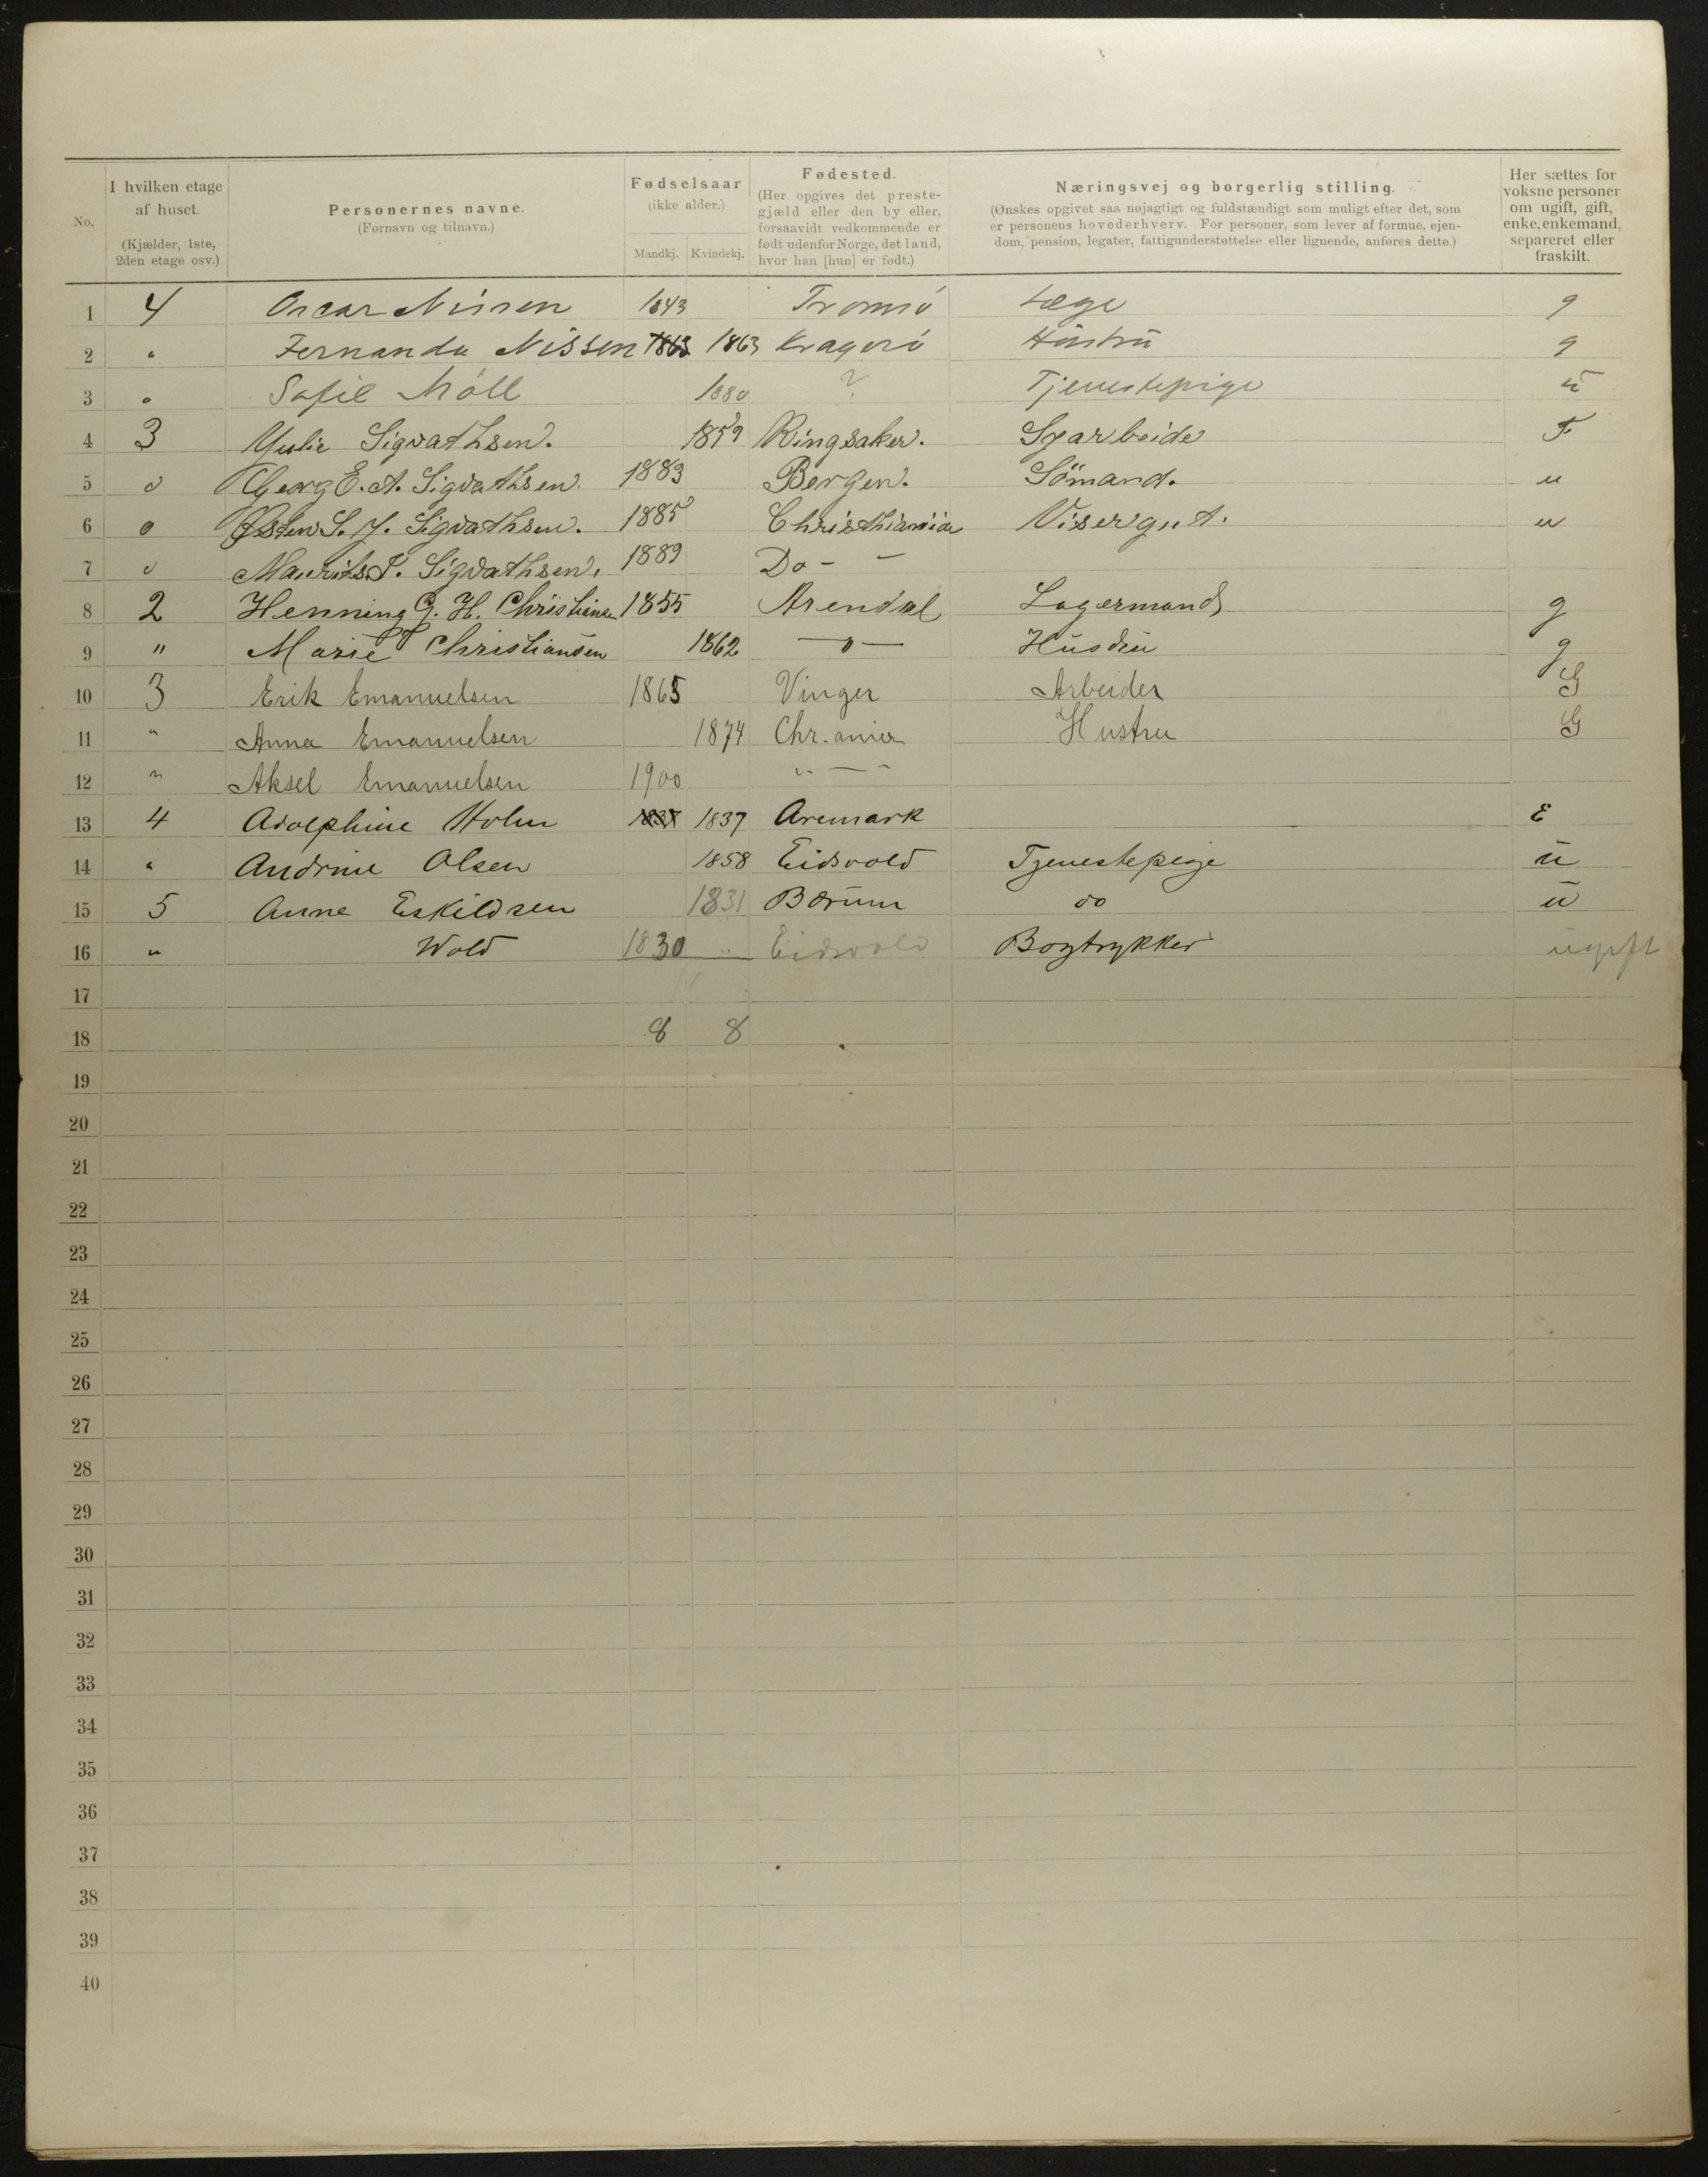 No. I hvilken etage af huset. (Kjælder, 1ste, 2den etage osv.) Personernes navne. (Fornavn og tilnavn.) Fødselsaar (ikke alder.) Mandkj. Kvindekj. Fødested. (Her opgives det prestegjæld eller den by eller, forsaavidt vedkommende er født udenfor Norge, det land, hvor han [hun] er født.) Næringsvej og borgerlig stilling. (Ønskes opgivet saa nøjagtigt og fuldstændigt som muligt efter det, som er personens hovederhverv. For personer, som lever af formue, ejendom, pension, legater, fattigunderstøttelse eller lignende, anføres dette.) Her sættes for voksne personer om ugift, gift, enke, enkemand, separeret eller fraskilt.
1 4 Oscar Nissen 1843 Tromsö Læge g
2 " Fernanda Nissen 1863 1863 Kragerö Hustrü g
3 " Sofie Möll 1880 ? Tjenestepige ü
4 3 Yulie Sigvathsen. 1859 Ringsaker. Syarbeide F
5 o Georg E. A. Sigvathsen. 1883 Bergen. Sömand. u
6 o Østen S. J. Sigvathsen. 1885 Christhiania Visergut. u
7 o Maurits. Sigvathsen. 1889 Do - -
8 2 Henning G. H. Christiansen 1855 Arendal Lagermand g
9 " Marie Christiansen 1862 —"— Hüsdru g
10 3 Erik Emanuelsen 1865 Vinger Arbeider G
11 " Anna Emanuelsen 1874 Chr.ania Hustru G
12 " Aksel Emanuelsen 1900 " — "
13 4 Adolphine Holm 1837 1837 Aremark E
14 " Andrine Olsen 1858 Eidsvold Tjenestepige ü
15 5 Anne Eskildsen 1831 Bærum do ü
16 " Wold 1830 Eidsvold Bogtrykker ugift
17
18 8 8
19
20
21
22
23
24
25
26
27
28
29
30
31
32
33
34
35
36
37
38
39
40